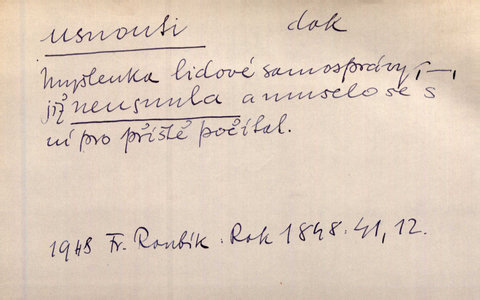 usnouti dok
Myšlenka lidové samosprávy
již neusnula a muselo se s
ní pro příště počítat.
1948 Fr. Roubík. Rok 1848. 41, 12.